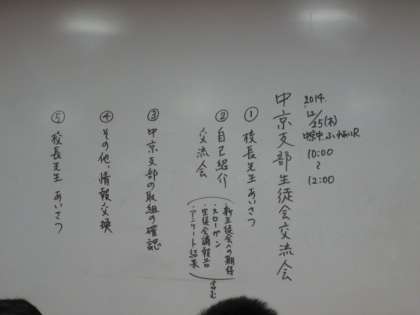 2014.
12/25(木)
10:00
〜
12:00
中京支部生徒会交流会
① 校長先生あいさつ
② 自己紹介
交流会
・新生徒会への期待
・スローガン
・生徒会議報告
・アンケート結果
含む
③ 中京支部の取組の確認
④ その他、情報交換
⑤ 校長先生 あいさつ